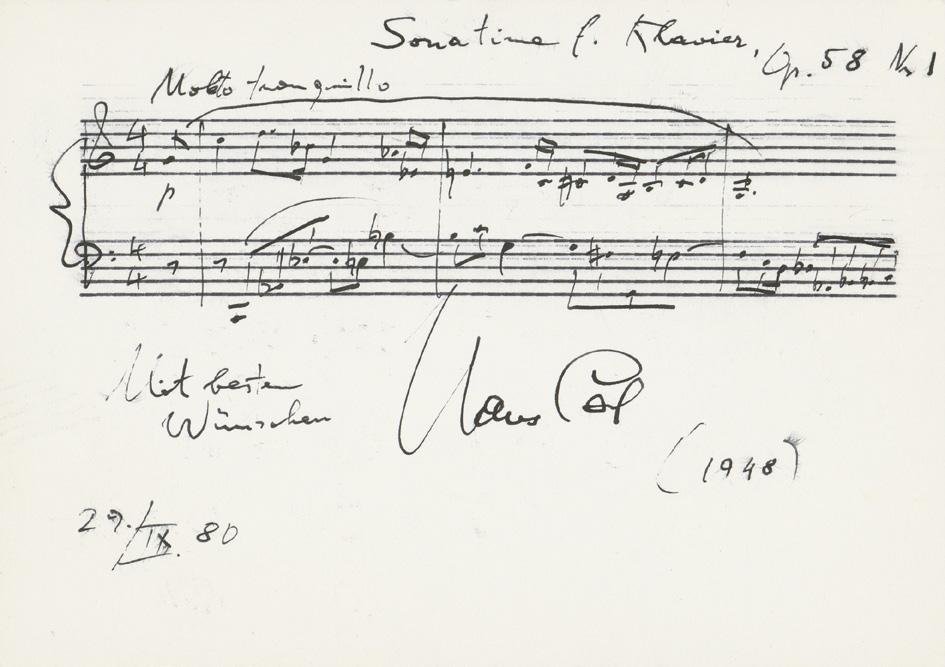 Sonatine f. Klavier, Op. 58 Nr 1
Molto tranquillo
4
4
p
4
4
Mit besten
Wünschen
Hans
(1948)
29./IX. 80